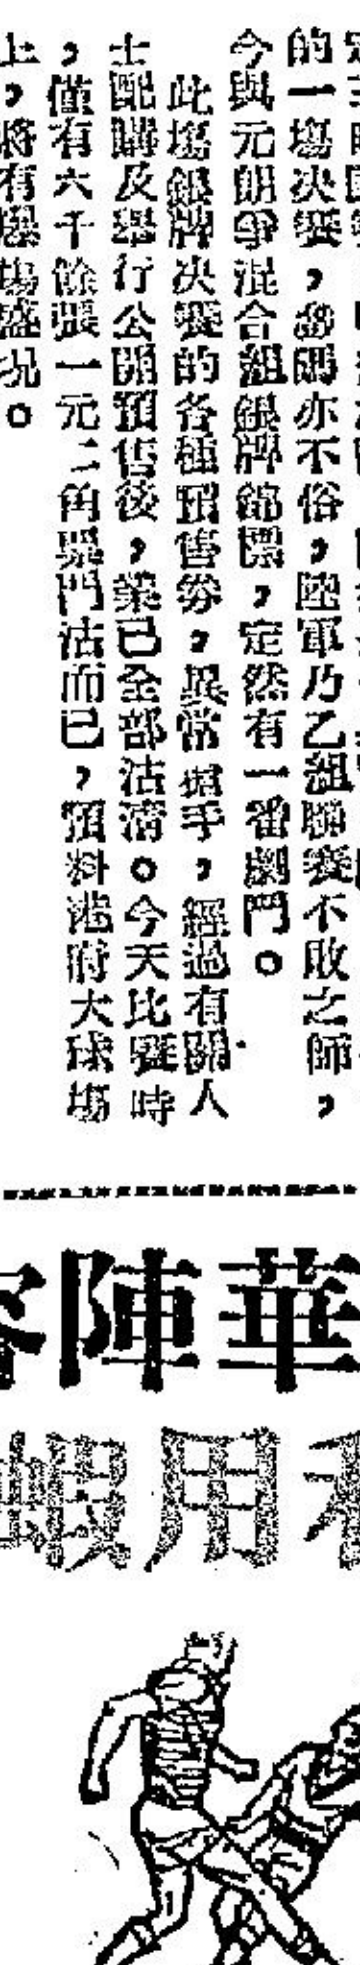 的一塲决賽,彩碼亦不俗,陸軍乃乙組聯賽不敗之師,
今與元朗爭混合組銀牌錦標,定然有一番劇鬥。
此塲銀牌决賽的各種預售券,異常搶手,經過有關人
士配購及舉行公開預售後,業已全部沽清。今天比賽時
,僅有六千餘張一元二角票門沽而已,預料港府大球塲
上,將有爆塲盛况。
華陣容
用蝦